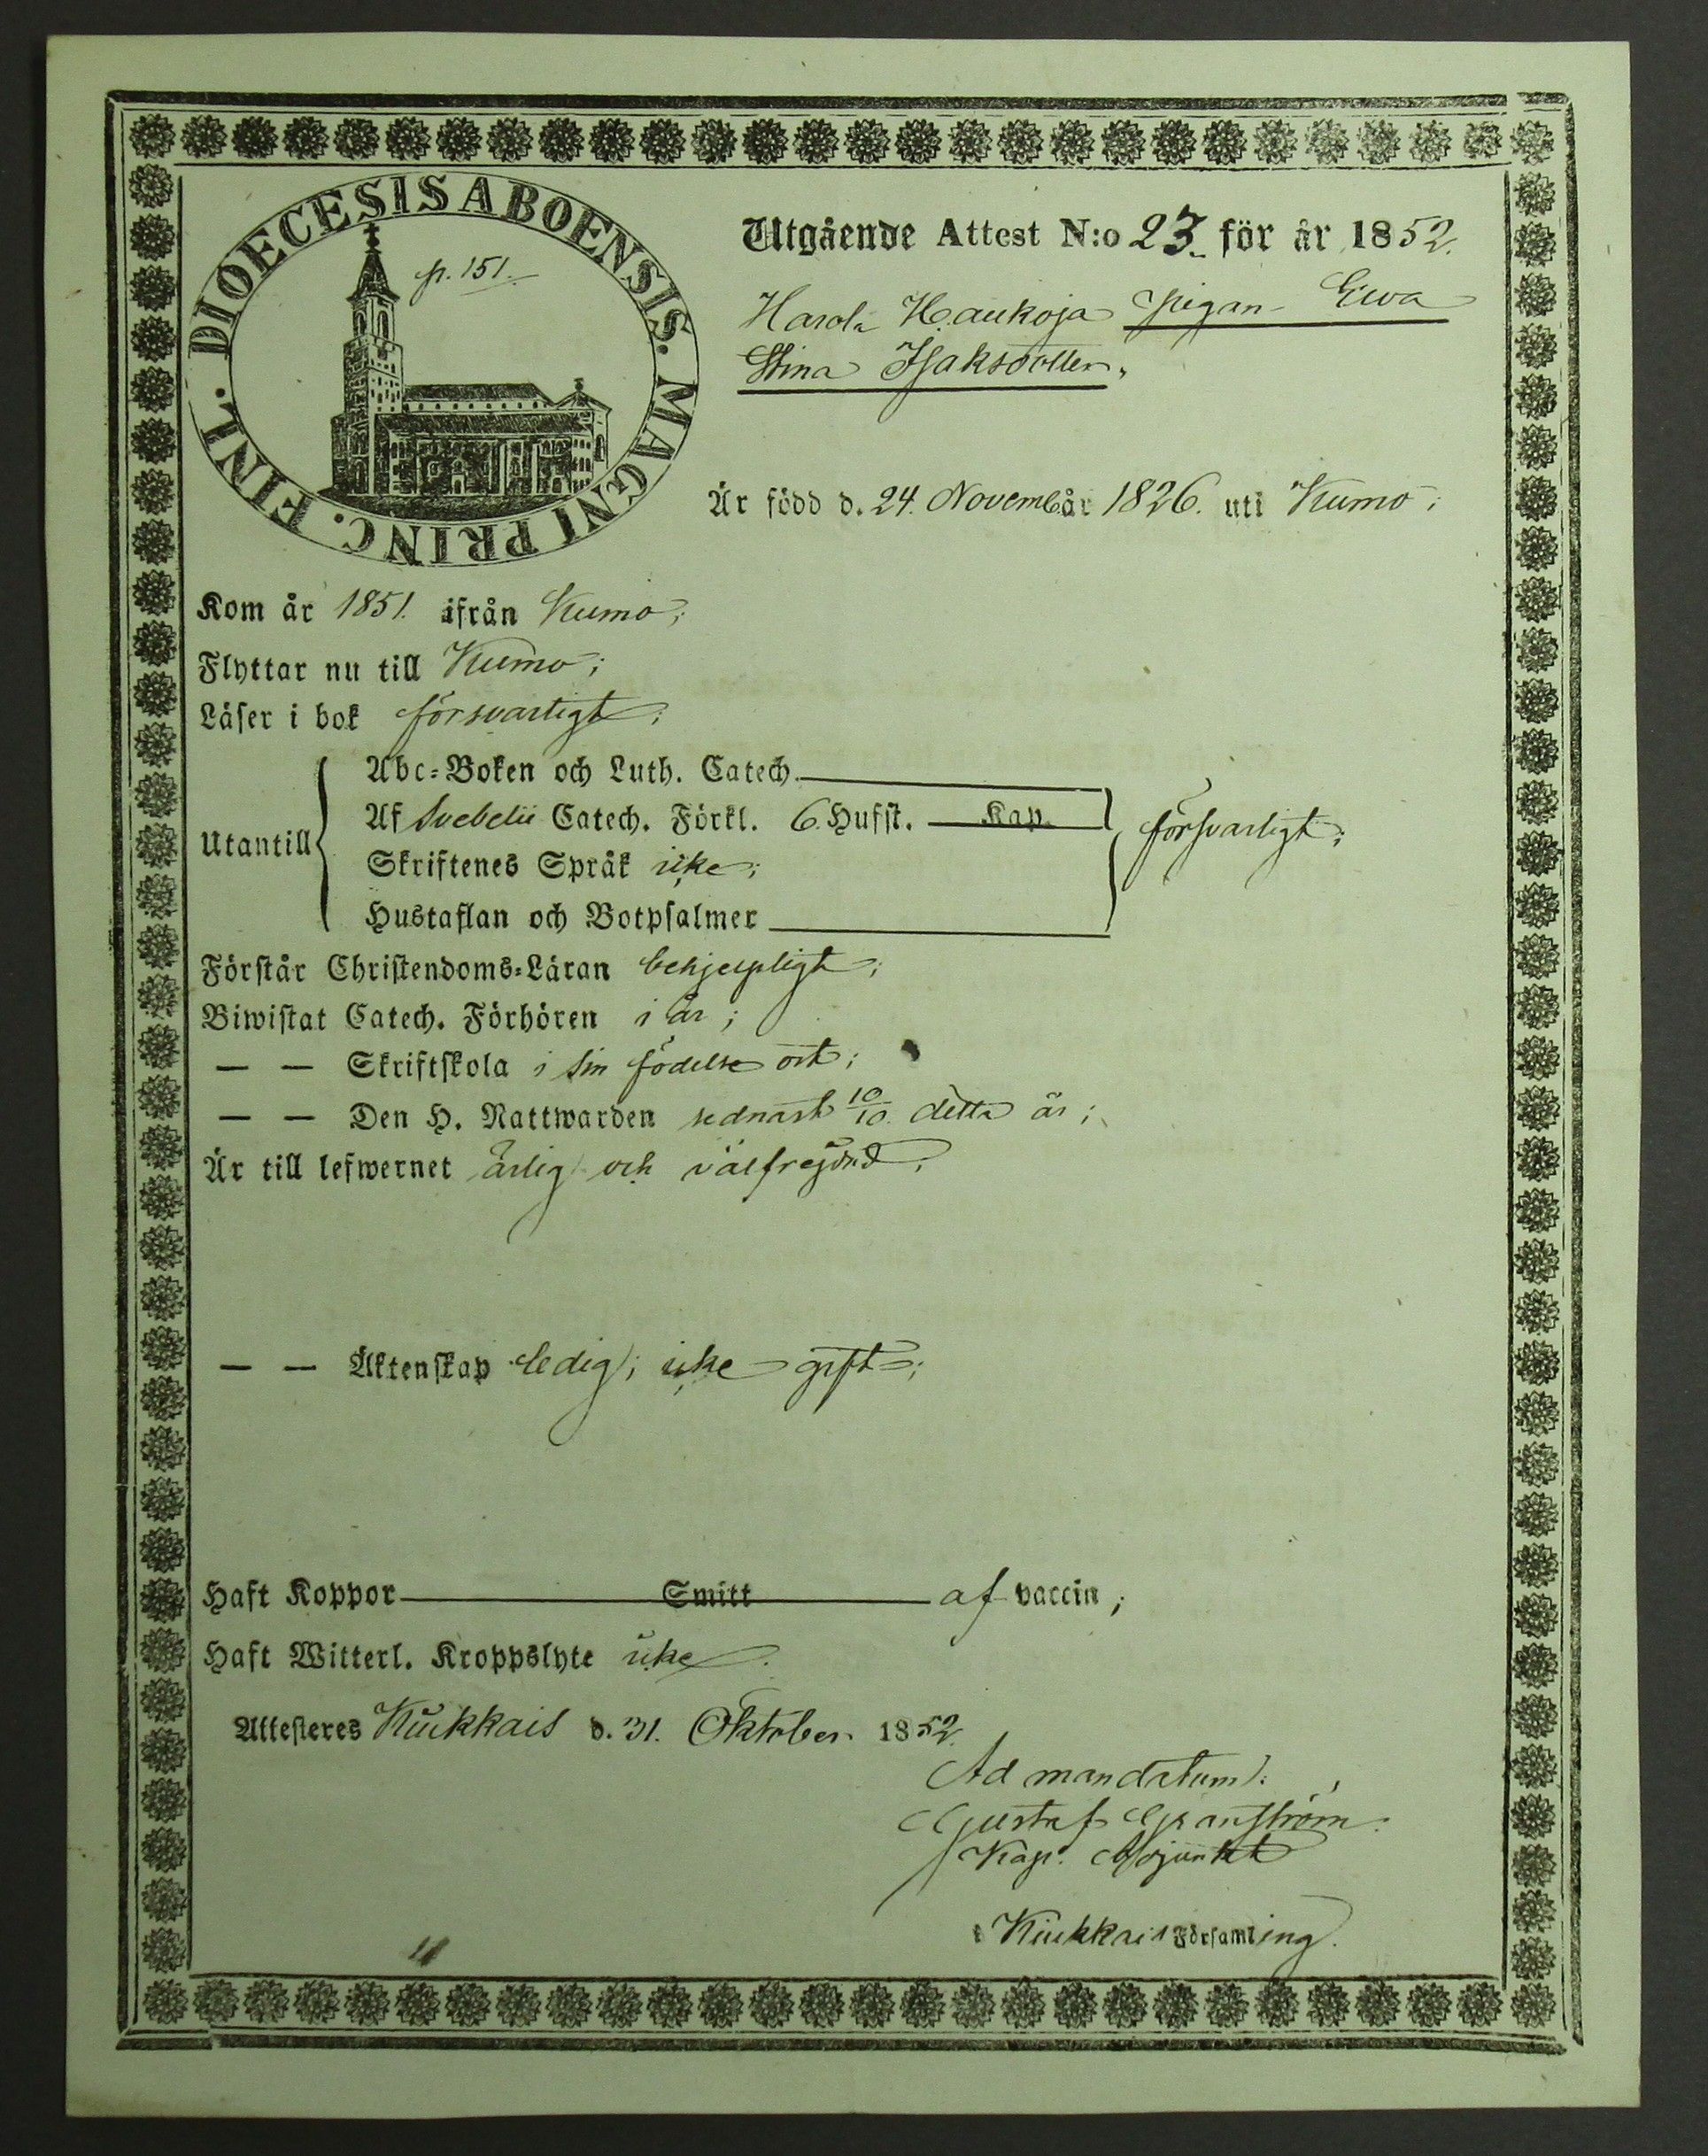 DIOECESIS ABOENSIS. MAGNI PRINC. FINL.
p. 151.
Utgående Attest N:o 23. för år 1852.
Harola Haukoja Pigan Ewa
Stina Isaksdotter.
Är född d. 24. Novemb. år 1826. uti Kumo;
Kom år 1851. ifrån Kumo;
Flyttar nu till Kumo;
Läser i bok försvarligt;
Utantill
Abc-Boken och Luth. Catech.
Af Svebelii Catech. Förkl. 6. Hufst. Kap.
försvarligt;
Skriftenes Språk icke;
Hustaflan och Botpsalmer
Förstår Christendoms-Läran behjelpligt;
Biwistat Catech. Förhören i år;
— — Skriftskola i sin födelse ort;
— — Den H. Nattwarden sednast 10/10. detta år;
Är till lefwernet ärlig och välfrejdad;
— — Äktenskap ledig; icke gift;
Haft Koppor Smitt af vaccin;
Haft Witterl. Kroppslyte icke.
Attesteres Kiukkais d. 31. Oktober 1852.
Ad mandatum:
Gustaf Granström.
Kap. Adjunkt
i Kiukkais Församling.